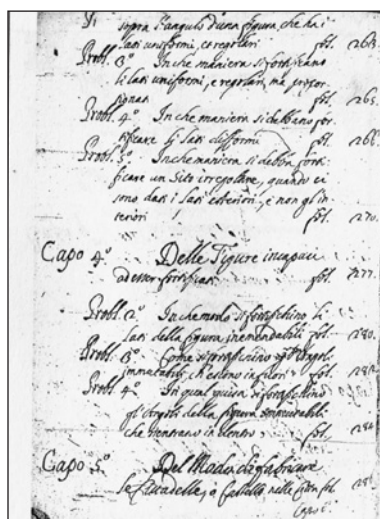 sopra l'angulo d'una figura, che ha i
lati uniformi, e regolari. fol. 263.
Probl. 3º In che maniera si fortificano
li lati uniformi, e regolari, ma
fol. 265.
Probl. 4º In che maniera si debbano for
tificare li lati difformi fol. 266.
Probl. 5º In che maniera si debba forti
ficare un Sito irregolare, quando ci
sono dati i lati esteriori, e non gl'in
teriori fol. 270.
Capo 4º Delle Figure incapaci
ad esser fortificati fol. 277.
Probl. 2º In che modo si fortifichino li
lati della figura inemendabili fol. 280.
Probl. 3º Come si fortifichino gl'Angoli
immutabili, ch'escono in fuori fol.
Probl. 4º In qual guisa si fortifichino
gl'Angoli della figura
che rientrano in dentro. fol.
Capo 5º Del Modo di fabricare
le Citadelle, o Castello nelle Città fol.
Capo